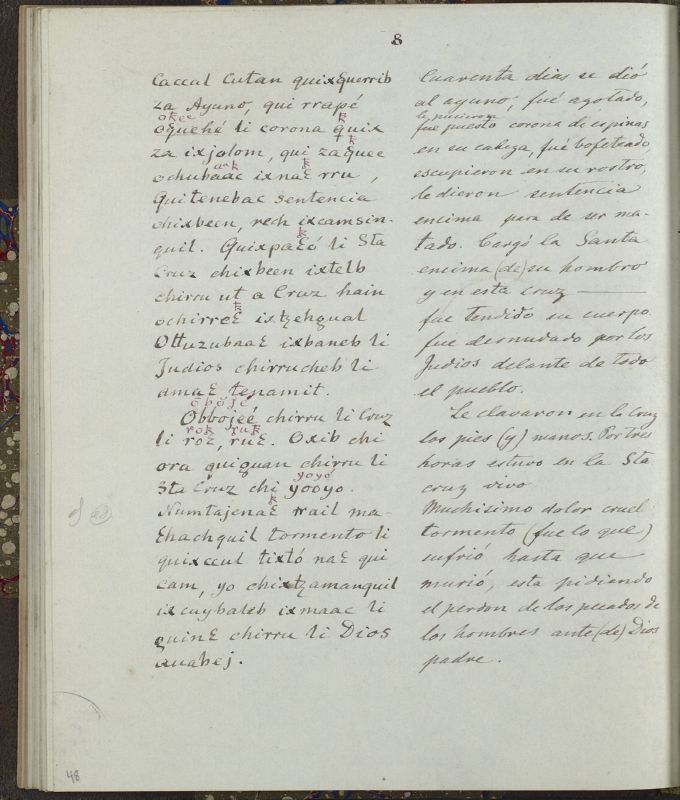 8
Caccal Cutan quixꜫuerrib
za Ayuno, qui rrapé
okee k
oꜫuehé li corona quix
k
za ixjolom, qui zaꜫuee
aak k
ochubaac ixnaꜫ rru,
Quitenebac sentencia
chixbeen, rech ixcamsin-
k
quil. Quixpaꜫó li Sta
Cruz chixbeen ixtelb
chirru ut a Cruz hain
k
ochirroꜫ ixtzehgual
Ottuzubaaꜫ ixbaneb li
Judios chirrucheb li
amaꜫ tenamit.
obojé
Obbojeé chirru li Cruz
rok ruk
li roꜫ, ruꜫ. Oxib chi
ora quiguan chirru li
yoyo
Sta Cruz chi yooyo.
k
Numtajenaꜫ rrail ma-
ꜫhachquil tormento li
quixccul tixtó naꜫ qui
cam, yo chixtzamanquil
ixcuybaleb ixmaac li
guinꜫ chirru li Dios
auabej.
Cuarenta dias se dió
al ayuno, fué azotado,
le pusieron
fue puesto corona de espinas
en su cabeza, fué bofeteado,
escupieron en su rostro,
le dieron sentencia
encima para de ser ma-
tado. Cargó la Santa
encima (de) su hombro
y en esta cruz
fue tendido su cuerpo
fue desnudado por los
Judios delante de todo
el pueblo.
Le clavaron en la Cruz
los pies (y) manos. Por tres
horas estuvo en la Sta
cruz vivo
Muchisimo dolor cruel
tormento (fue lo que)
sufrió hasta que
murió, esta pidiendo
el perdon de los pecados de
los hombres ante (de) Dios
padre.
48